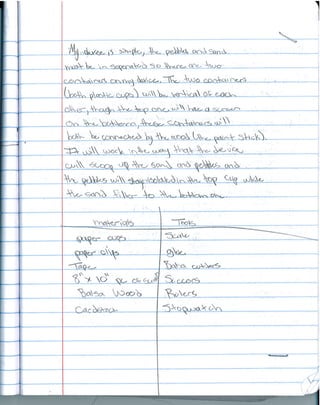 My device is simple, the pebbles and sand
must be in seperated so there are two
containers on my device. The two containers
(both plastic cups) will be vertical of each
other, though the top one will have a screen
on the bottom, these containers will
both be connected by the wood (the paint stick).
It will work in the way that the device
will scoop up the sand and pebbles and
the pebbles will stay isolated in the top cup while
the sand filter to the bottom one.
materials Tools
paper cups Scale
paper clips glue
Tape Balsa cutters
8" x 10" pc of Sccors
Balsa Wood Rulers
Cardstock Stopwatch